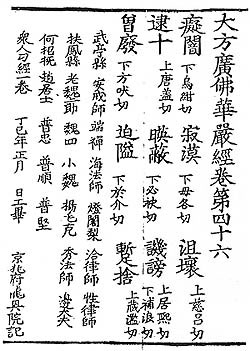 大方廣佛華嚴經卷第四十六
癡闇 下烏紺切 寂漠 下毋各切 沮壞 上慈呂切
逮十 上唐盍切 映蔽 下必袂切 譏謗 上居熙切 下補浪切
曽廢 下方吠切 迫隘 下於介切 蹔捨 上藏濫切
武亭縣 安戒師 端禪 海法師 燈闍梨 洽律師 性律師
扶鳳縣 老魏三郎 魏四 小魏 楊七元 秀法師 邊大夫
何招撫 趙居士 普忠 普順 普堅
衆人勾經一卷 丁巳年正月 日工畢 京兆府龍興院記